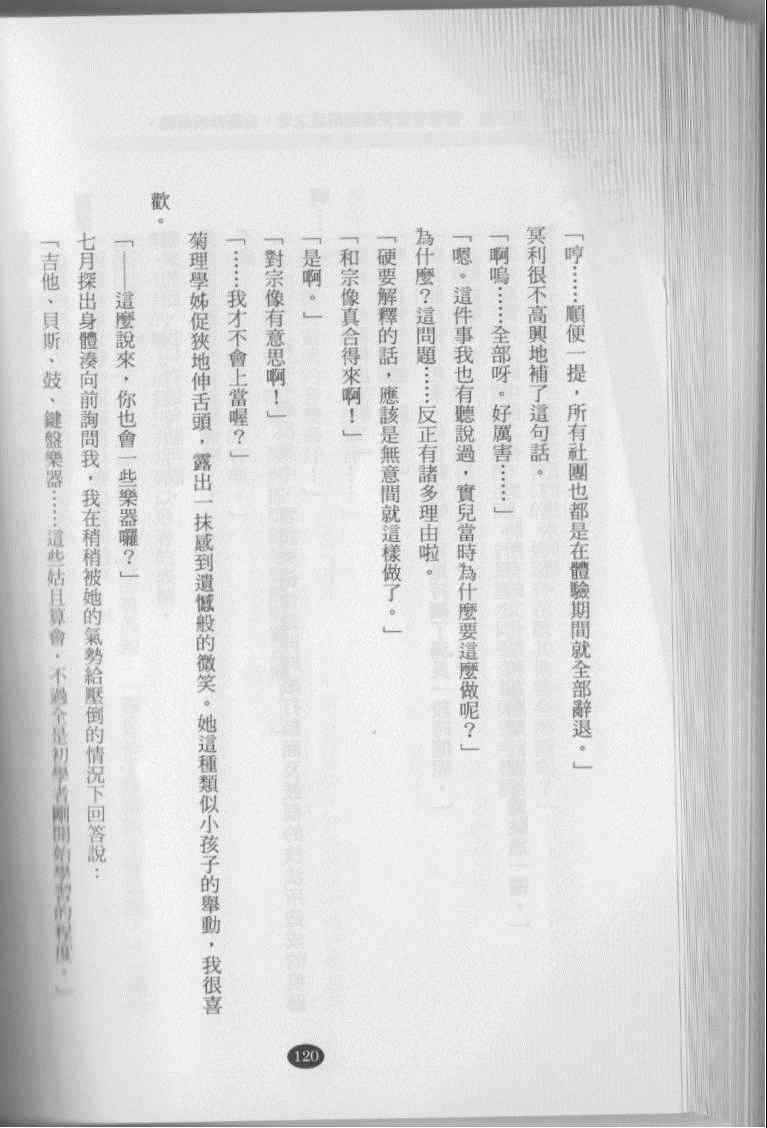 「哼……順便一提，所有社團也都是在體驗期間就全部辭退。」
冥利很不高興地補了這句話。
「啊嗚……全部呀。好厲害……」
「嗯。這件事我也有聽說過，實兒當時為什麼要這麼做呢？」
為什麼？這問題……反正有諸多理由啦。
「硬要解釋的話，應該是無意間就這樣做了。」
「和宗像真合得來啊！」
「是啊。」
「對宗像有意思啊！」
「……我才不會上當喔？」
菊理學姊促狹地伸舌頭，露出一抹感到遺憾般的微笑。她這種類似小孩子的舉動，我很喜
歡。
「——這麼說來，你也會一些樂器囉？」
七月探出身體湊向前詢問我，我在稍稍被她的氣勢給壓倒的情況下回答說：
「吉他、貝斯、鼓、鍵盤樂器……這些姑且算會，不過全是初學者剛開始學習的程度。」
120